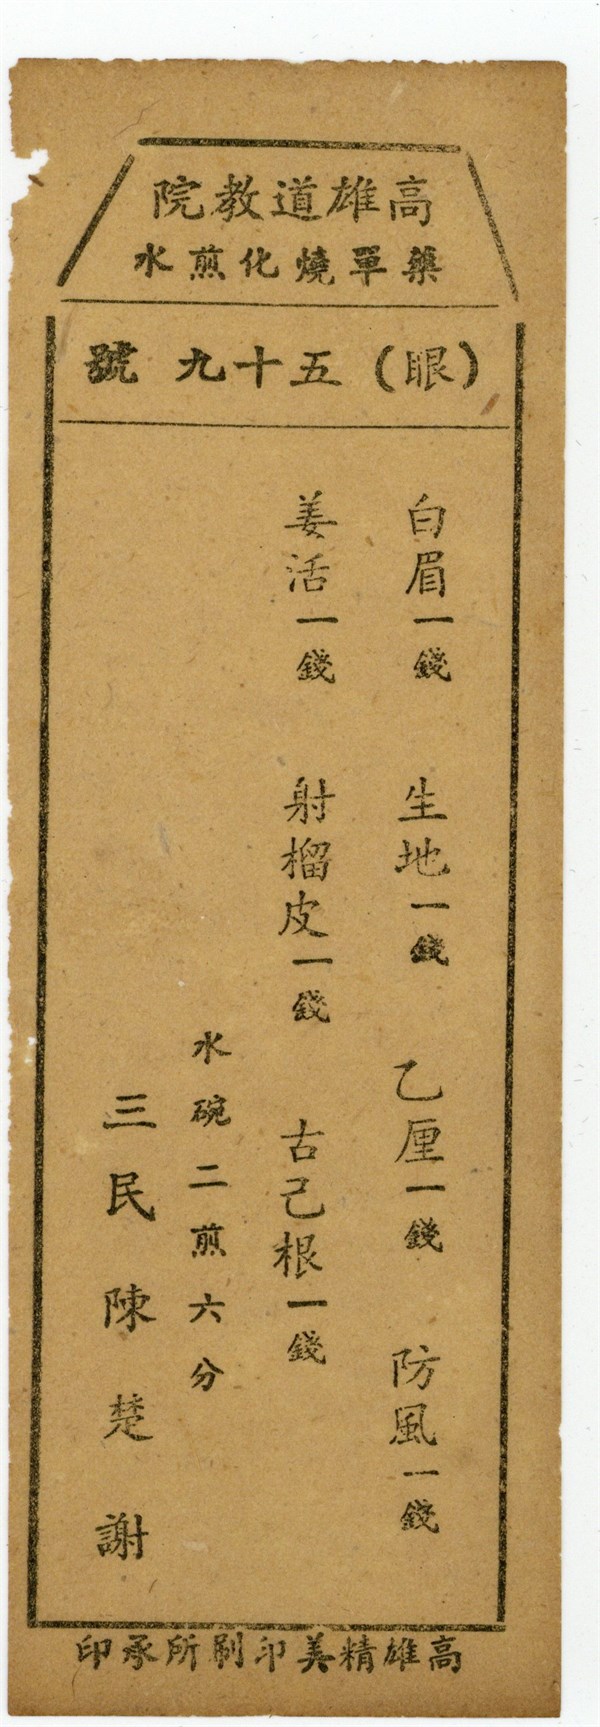 高雄道教院
藥單燒化煎水
（眼）五十九號
白眉一錢 生地一錢 乙厘一錢 防風一錢
姜活一錢 射榴皮一錢 古己根一錢
水碗二煎六分
三民陳楚謝
高雄精美印刷所承印